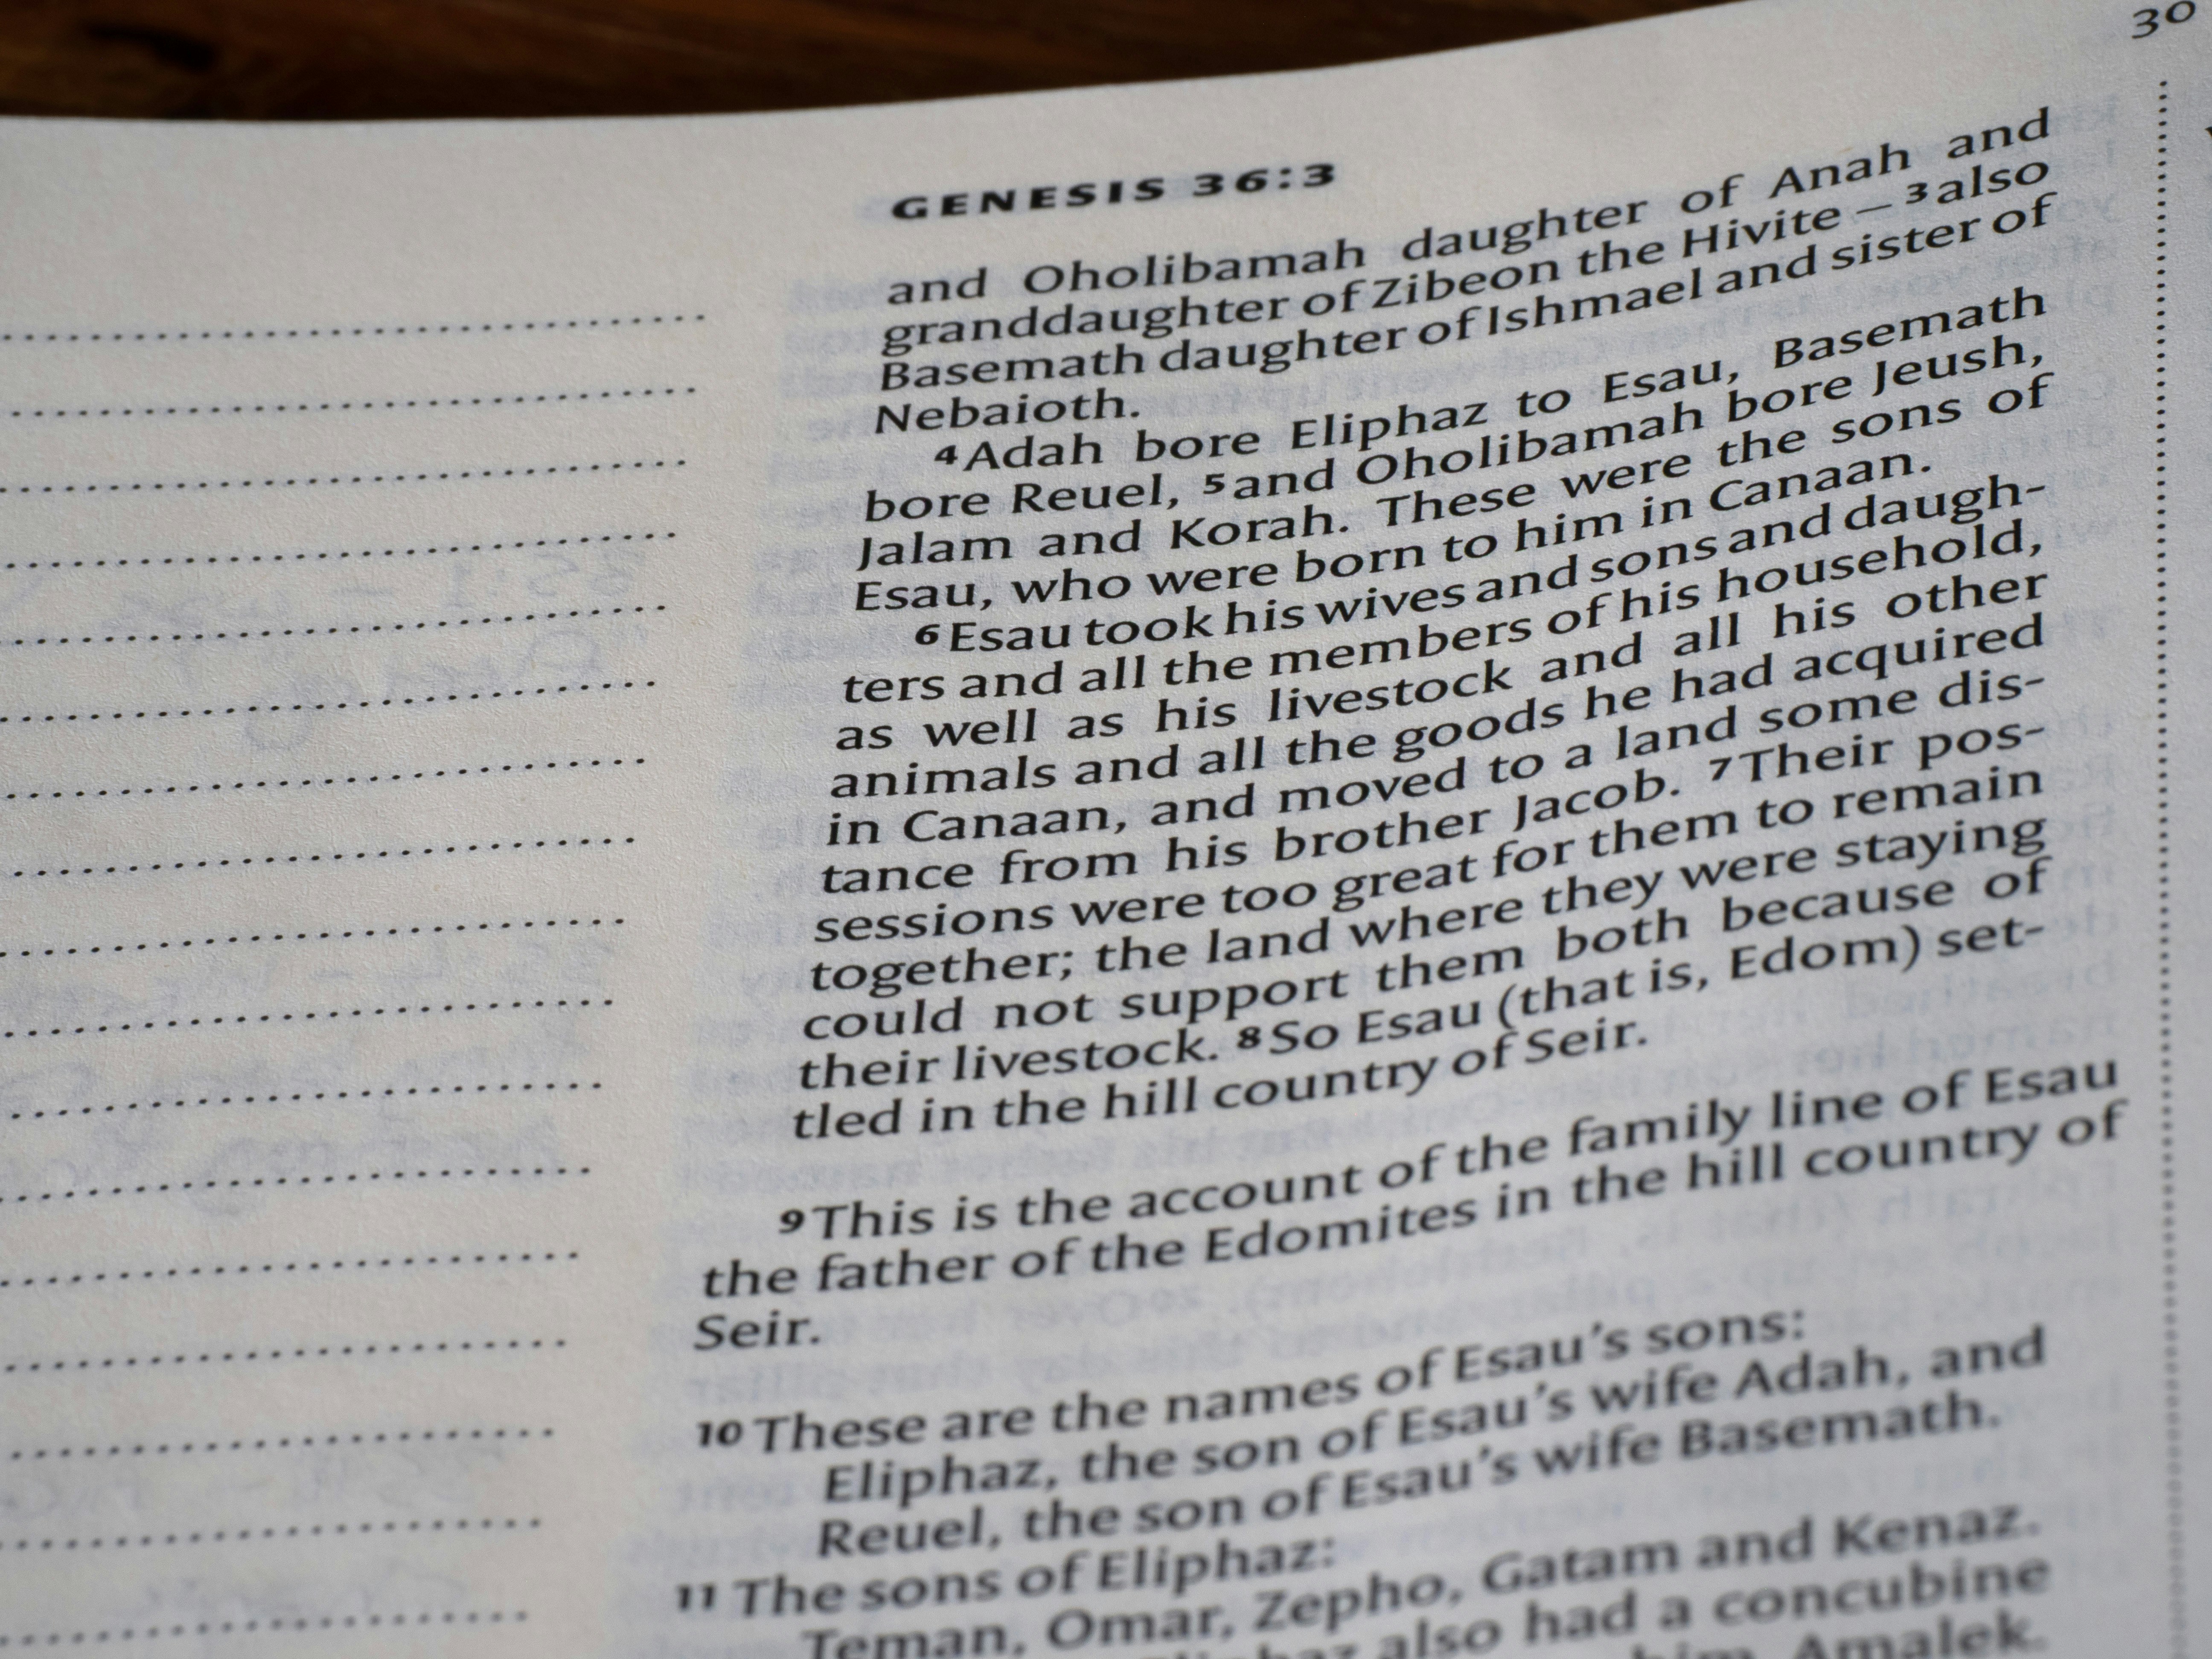 30
GENESIS 36:3
and Oholibamah daughter of Anah and
granddaughter of Zibeon the Hivite – 3 also
Basemath daughter of Ishmael and sister of
Nebaioth.
4 Adah bore Eliphaz to Esau, Basemath
bore Reuel, 5 and Oholibamah bore Jeush,
Jalam and Korah. These were the sons of
Esau, who were born to him in Canaan.
6 Esau took his wives and sons and daugh-
ters and all the members of his household,
as well as his livestock and all his other
animals and all the goods he had acquired
in Canaan, and moved to a land some dis-
tance from his brother Jacob. 7 Their pos-
sessions were too great for them to remain
together; the land where they were staying
could not support them both because of
their livestock. 8 So Esau (that is, Edom) set-
tled in the hill country of Seir.
9 This is the account of the family line of Esau
the father of the Edomites in the hill country of
Seir.
10 These are the names of Esau’s sons:
Eliphaz, the son of Esau’s wife Adah, and
Reuel, the son of Esau’s wife Basemath.
11 The sons of Eliphaz:
Teman, Omar, Zepho, Gatam and Kenaz.
also had a concubine
him Amalek.